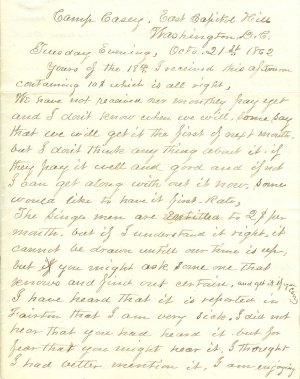 Camp Casey, East Capitol Hill
Washington D.C.
Tuesday Evening, Octo. 21st 1862
Yours of the 19th I received this afternoon
containing 10$ which is all right,
We have not received our monthly pay yet
and I don't know when we will, some say
that we will get it the first of next month,
but I don't think any thing about it. if
they pay it well and good and if not
I can get along with out it now, some
would like to have it first-rate,
The Single men are entitled to 2$ per
month, but if I understand it right, it
cannot be drawn untill our time is up,
but if you might ask some one that
knows and find out certain, and get it if you
I have heard that it is reported in
Fairton that I am very sick. I did not
hear that you had heard it. but for
fear that you might hear it, I thought
I had better mention it, I am enjoying